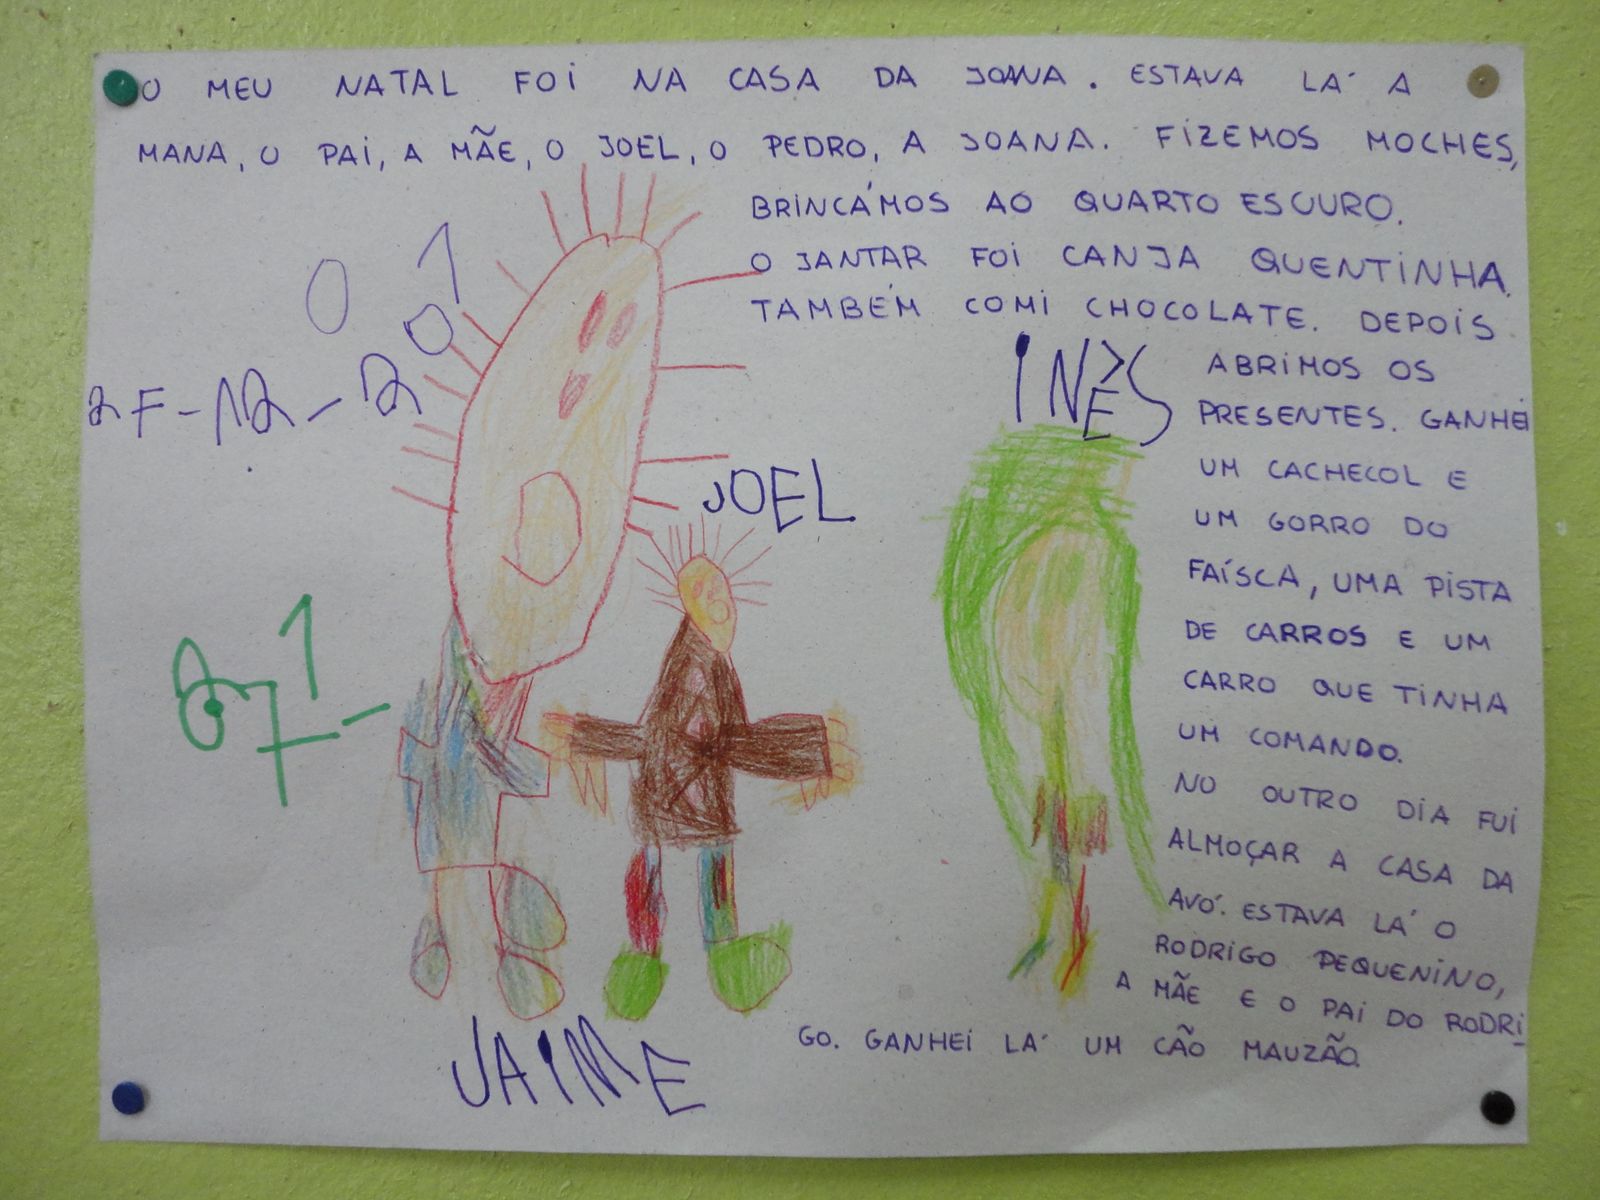 O MEU NATAL FOI NA CASA DA JOANA. ESTAVA LÁ A
MANA, O PAI, A MÃE, O JOEL, O PEDRO, A JOANA. FIZEMOS MOCHES,
BRINCÁMOS AO QUARTO ESCURO.
O JANTAR FOI CANJA QUENTINHA.
TAMBÉM COMI CHOCOLATE. DEPOIS
ABRIMOS OS
PRESENTES. GANHEI
UM CACHECOL E
UM GORRO DO
FAÍSCA, UMA PISTA
DE CARROS E UM
CARRO QUE TINHA
UM COMANDO.
NO OUTRO DIA FUI
ALMOÇAR A CASA DA
AVÓ. ESTAVA LÁ O
RODRIGO PEQUENINO,
A MÃE E O PAI DO RODRI
GO. GANHEI LÁ UM CÃO MAUZÃO.
INÊS
JOEL
JAIME